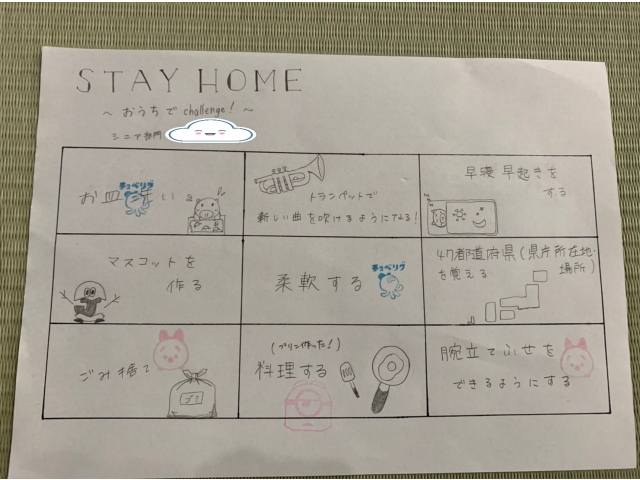 STAY HOME
～おうちで challenge!～
シニア部門
お皿洗い
チョベリグ
トランペットで
新しい曲を吹けるようになる!
早寝早起きを
する
zzz
マスコットを
作る
柔軟する
チョベリグ
47都道府県(県庁所在地・
を覚える 場所)
ごみ捨て
ゴミ
(プリン作った!)
料理する
腕立てふせを
できるようにする